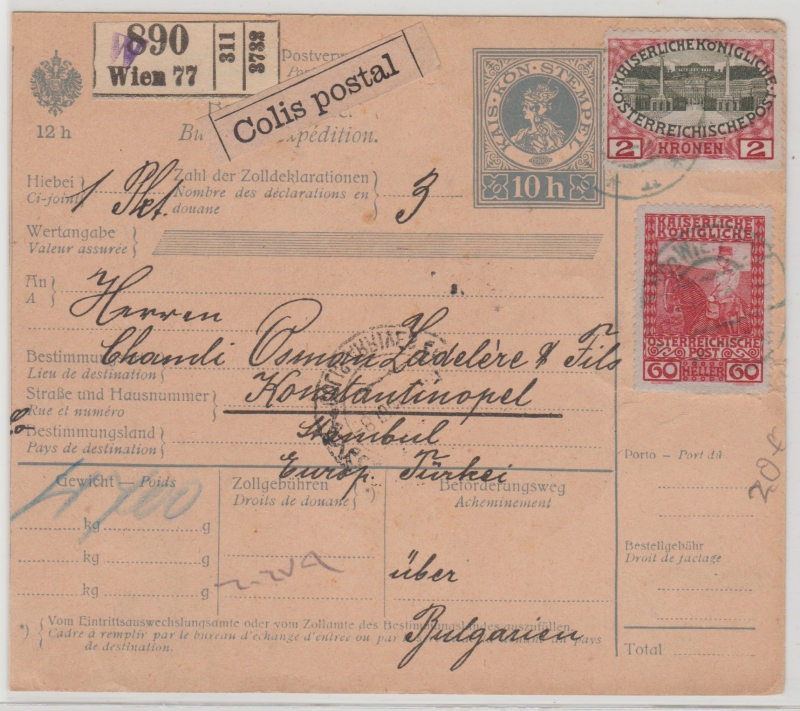 890
Wien 77
311
3732
Colis postal
12 h
Postver
KAIS. KÖN. STEMPEL
10 h
KAISERLICHE KÖNIGLICHE
ÖSTERREICHISCHE POST
2 KRONEN 2
Bu pédition.
Hiebei
Ci-joint
1 Pkt.
Zahl der Zolldeklarationen
Nombre des déclarations en
douane
3
Wertangabe
Valeur assurée
KAISERLICHE
KÖNIGLICHE
ÖSTERREICHISCHE
POST
60 HELLER 60
An
A
Herren
Chamli Osman Zadelère & Fils
Bestimmung
Lieu de destination
Straße und Hausnummer
Rue et numéro
Konstantinopel
Stambul
Bestimmungsland
Pays de destination
Europ. Türkei
Gewicht — Poids
Zollgebühren
Droits de douane
*)
Beförderungsweg
Acheminement
kg g
kg g
kg g
über
Bulgarien
Porto — Port dû
20 €
Bestellgebühr
Droit de factage
Total
*) Vom Eintrittsauswechslungsamte oder vom Zollamte des Bestimmungslandes auszufüllen.
Cadre à remplir par le bureau d'échange d'entrée ou par du pays
de destination.